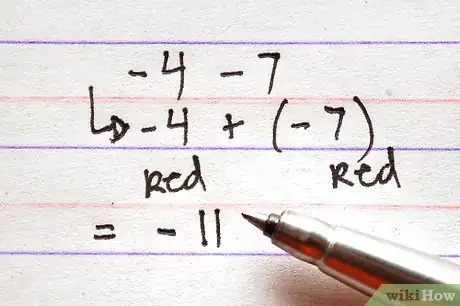 -4 -7
↳ -4 + (-7)
Red Red
= -11
wikiHow